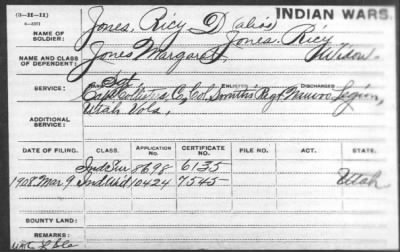 (3-22-11)
INDIAN WARS.
NAME OF SOLDIER: Jones, Ricy D (alias)
Jones, Ricy
NAME AND CLASS OF DEPENDENT: Jones Margaret Widow
SERVICE: ENLISTED DISCHARGED
Sgt
Capt Co, Col Smith's Regt Nauvoo Legion,
Utah Vols,
ADDITIONAL SERVICE:
DATE OF FILING. CLASS. APPLICATION NO. CERTIFICATE NO. FILE NO. ACT. STATE.
Ind Sur 8698 6135
1908 Mar 9 Ind Wid 10424 7545 Utah
BOUNTY LAND:
REMARKS: